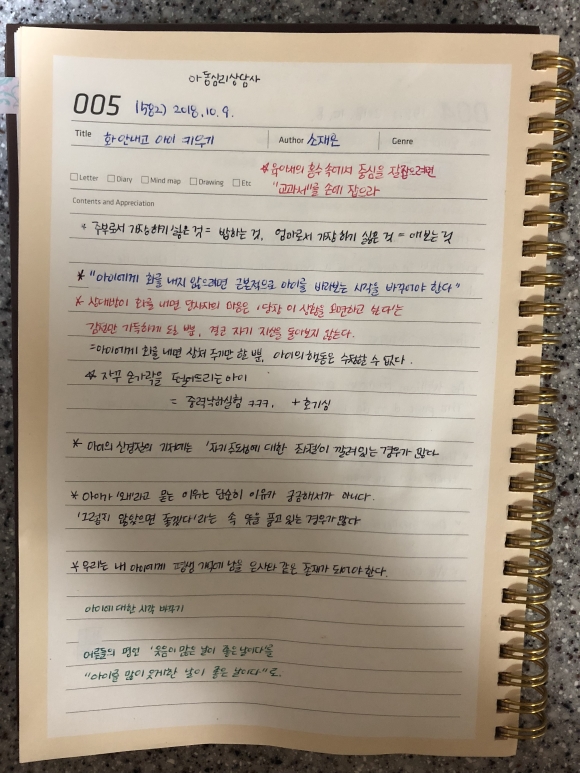 아동심리상담사
005 (582) 2018.10.9.
Title 화 안내고 아이 키우기 Author 소재은 Genre
* 육아내의 홍수 속에서 중심을 잡으려면
Letter Diary Mind map Drawing Etc "교과서"를 손에 잡으라
Contents and Appreciation
* 주부로서 가장하기 싫은 것 = 밥하는 것, 엄마로서 가장 하기 싫은 것 = 애보는 것
* "아이에게 화를 내지 않으려면 근본적으로 아이를 바라보는 시각을 바꾸어야 한다"
* 상대방이 화를 내면 당사자의 마음은 '당장 이 상황을 모면하고 싶다'는
감정만 가득하게 될 뿐, 결코 자기 자신을 돌아보지 않는다.
=아이에게 화를 내면 상처 주기만 할 뿐, 아이의 행동은 수정할 수 없다.
* 자꾸 숟가락을 떨어뜨리는 아이
= 중력낙하실험 ㅋㅋㅋ. + 호기심
* 아이의 신경전의 기저에는 '자기주도성에 대한 좌절'이 깔려있는 경우가 많다
* 아이가 '왜'라고 묻는 이유는 단순히 이유가 궁금해서가 아니다.
'그렇지 않았으면 좋겠다'라는 속 뜻을 품고 있는 경우가 많다
* 우리는 내 아이에게 평생 기억에 남을 은사와 같은 존재가 되어야 한다.
아이에 대한 시각 바꾸기
어른들의 명언 '웃음이 많은 날이 좋은 날이다'를
"아이를 많이 웃게한 날이 좋은 날이다"로.